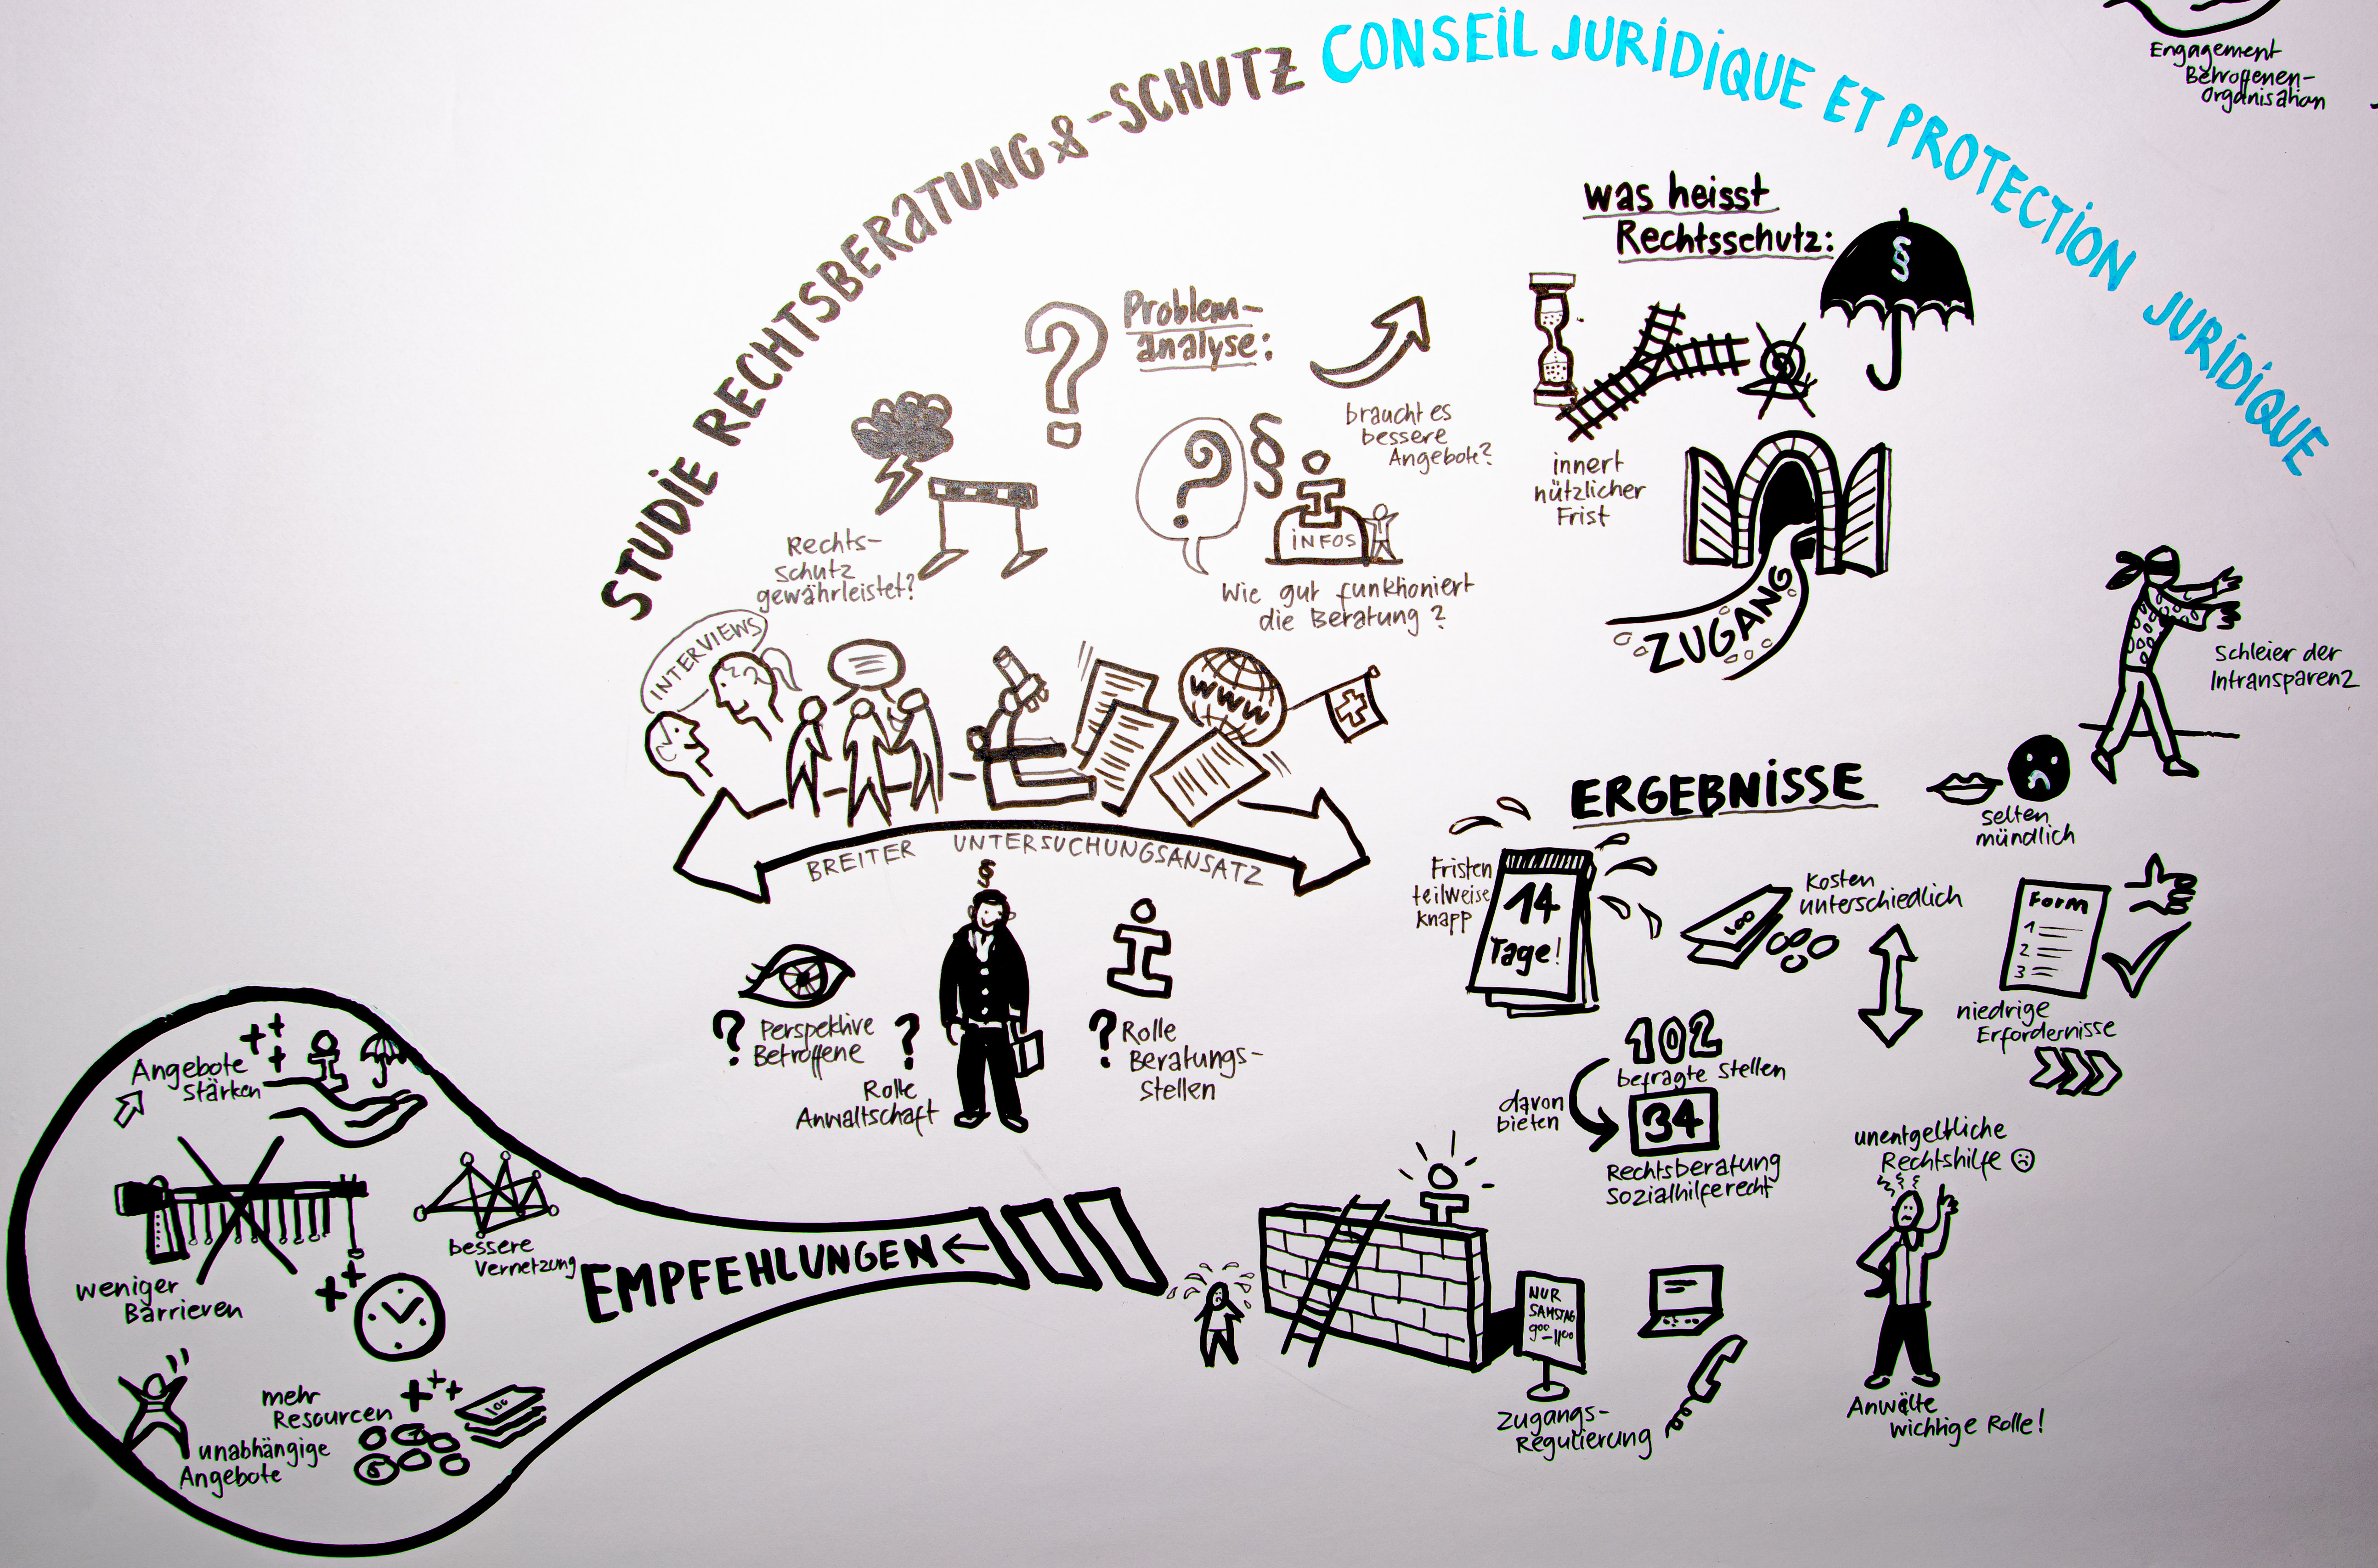 STUDIE RECHTSBERATUNG & -SCHUTZ CONSEIL JURIDIQUE ET PROTECTION JURIDIQUE
Engagement
Betroffenen-
organisation
Problem-
analyse:
Rechts-
schutz
gewährleistet?
?
§
INFOS
Wie gut funktioniert
die Beratung?
braucht es
bessere
Angebote?
was heisst
Rechtsschutz:
§
innert
nützlicher
Frist
ZUGANG
INTERVIEWS
WWW
BREITER UNTERSUCHUNGSANSATZ
§
? Perspektive
Betroffene
?
Rolle
Anwaltschaft
? Rolle
Beratungs-
stellen
ERGEBNISSE
Schleier der
Intransparenz
selten
mündlich
Fristen
teilweise
knapp
14
Tage!
100
Kosten
unterschiedlich
Form
1
2
3
niedrige
Erfordernisse
102
befragte Stellen
davon
bieten
34
Rechtsberatung
Sozialhilferecht
unentgeltliche
Rechtshilfe ☹
Anwälte
wichtige Rolle!
NUR
SAMSTAG
9⁰⁰-11⁰⁰
Zugangs-
Regulierung
EMPFEHLUNGEN ←
Angebote
stärken
weniger
Barrieren
bessere
Vernetzung
mehr
Resourcen
100
5
unabhängige
Angebote